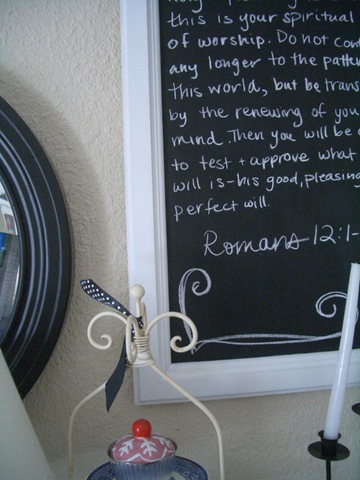 this is your spiritual
of worship. Do not con
any longer to the patte
this world, but be trans
by the renewing of you
mind. Then you will be a
to test + approve what
will is-his good, pleasing
perfect will.
Romans 12:1-